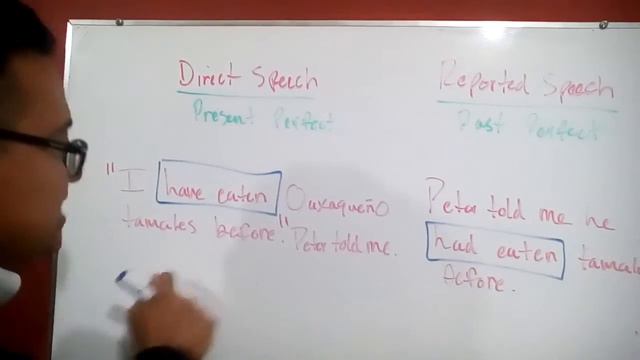 Direct Speech
Present Perfect
"I have eaten Ouxaqueño
tamales before." Peter told me.
Reported Speech
Past Perfect
Peter told me he
had eaten tamale
before.